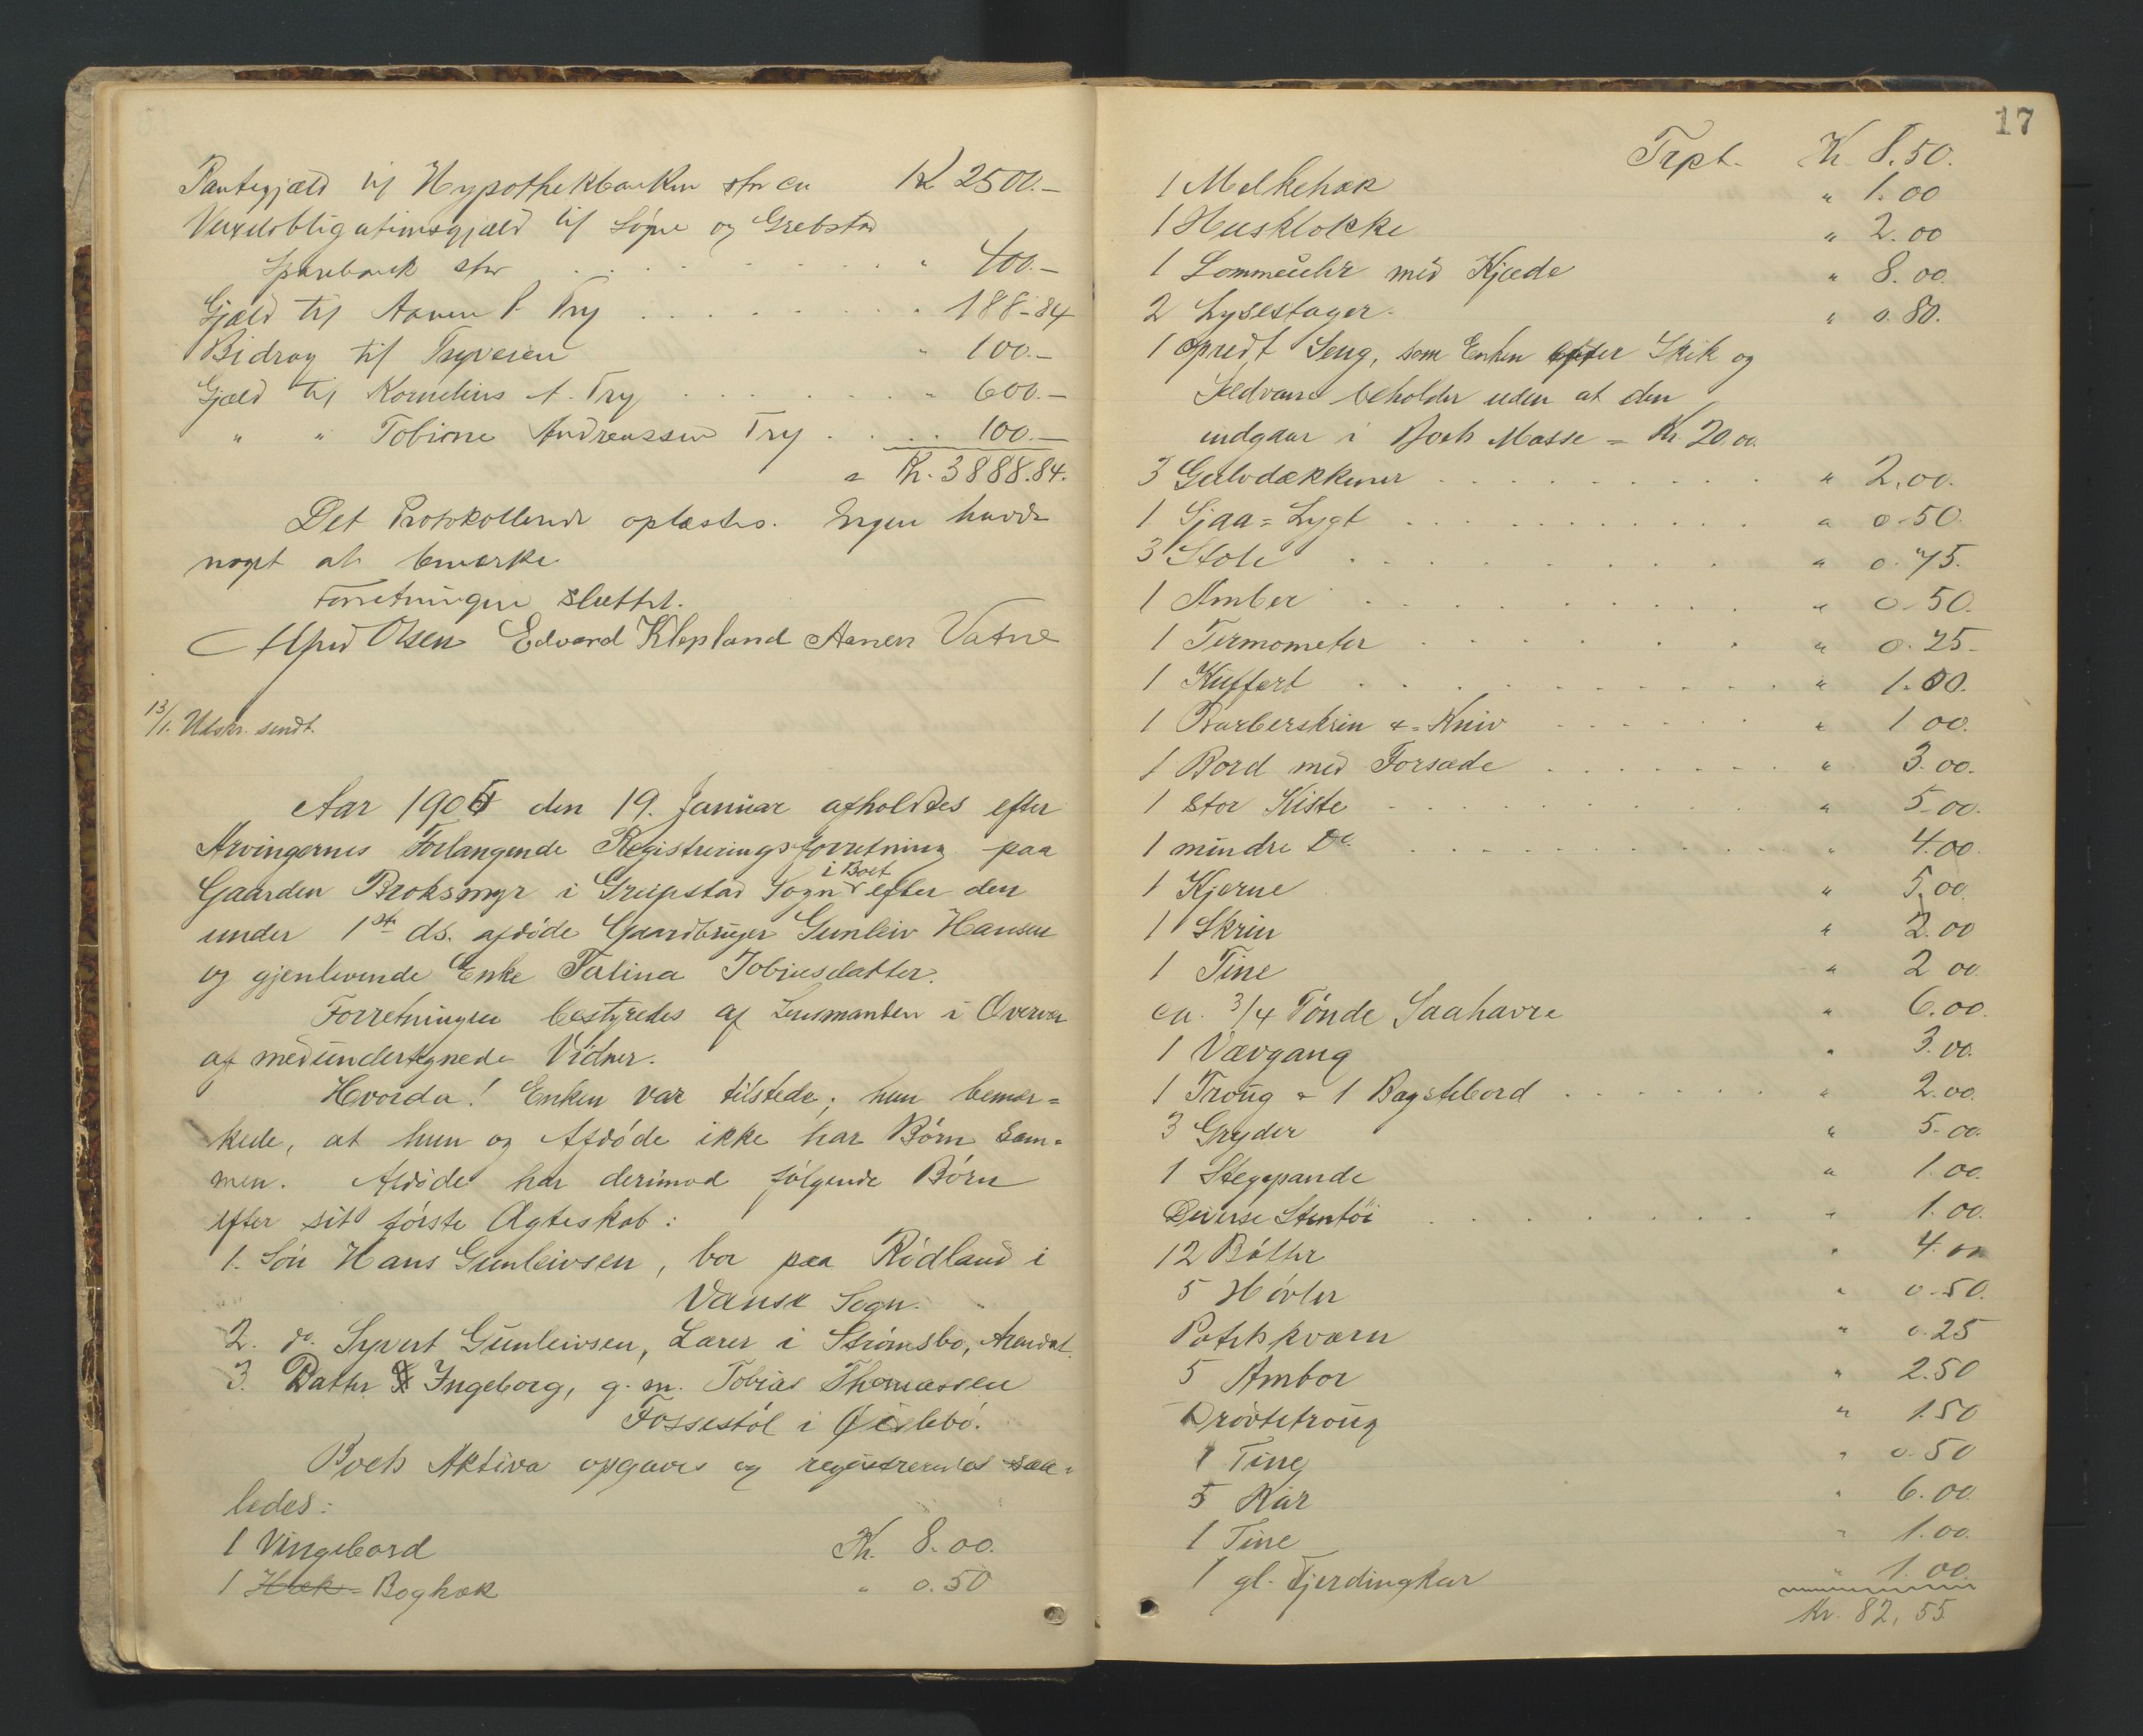 Pantegjæld til Hypothekbanken stor ca Kr 2500.—
Vexelobligationsgjæld til Søgne og Grebstad
Sparebank stor . . . . . . . . . " 400.—
Gjæld til Aanen P. Try . . . . . . . . . 188-84
Bidrag til Tryveien " 100.—
Gjæld til Kornelius A. Try . . . . . . . " 600.—
" " Tobine Andreassen Try . . . . 100.—
= Kr. 3888.84.
Det Protokollerede oplæstes. Ingen havde
noget at bemærke
Forretningen sluttet.
Alfred Olsen Edvard Klepland Aanen Vatne
13/1. Udskr. sendt.
Aar 1904 den 19. Januar afholdtes efter
Arvingernes Forlangende Registreringsforretning paa
i Boet
Gaarden Broksmyr i Greipstad Sogn efter den
under 1ste ds. afdøde Gaardbruger Gunleiv Hansen
og gjenlevende Enke Talina Tobiasdatter.
Forretningen bestyredes af Lensmanden i Overvær
af medundertegnede Vidner.
Hvorda! Enken var tilstede; hun bemær=
kede, at hun og Afdøde ikke har Børn sam=
men. Afdøde har derimod følgende Børn
efter sit første Ægteskab:
1. Søn Hans Gunleivsen, bor paa Rødland i
Vanse Sogn.
2. do. Syvert Gunleivsen, Lærer i Strømsbo, Arendal.
3. Datter Ingeborg, g. m. Tobias Thomassen
Fossestøl i Øislebø.
Boets Aktiva opgaves og registreredes saa=
ledes:
1 Vingebord Kr. 8.00.
1 Hæk= Boghæk " 0.50
17
Trpt. Kr. 8.50.
1 Melkehæk " 1.00
1 Husklokke " 2.00
1 Lommeuhr med Kjæde " 8.00.
2 Lysestager. " 0.80.
1 opredt Seng, som Enken efter Skik og
Sædvane beholder uden at den
indgaar i Boets Masse = Kr. 20.00.
3 Gulvdækkener . . . . . . . . . " 2.00.
1 Sjaa=Lygt . . . . . . . . . " 0.50.
3 Stole . . . . . . . . . " 0.75.
1 Amber . . . . . . . . . " 0.50.
1 Termometer . . . . . . . " 0.25-
1 Kuffert . . . . . . . . . " 1.00.
1 Barberskrin & =Kniv . . . . . . " 1 00.
1 Bord med Forsæde . . . . . . . " 3.00.
1 stor Kiste . . . . . . . . . " 5.00.
1 mindre Do. . . . . . . . . . . " 4.00.
1 Kjerne " 5.00.
1 Skrin " 2.00
1 Tine " 2 00.
ca. 3/4 Tønde Saahavre " 6.00.
1 Vævgang " 3.00.
1 Troug & 1 Bagstebord . . . . . . " 2.00.
3 Gryder " 5.00.
1 Stegepande " 1.00.
Diverse Stentøi . . . . . . . . " 1.00.
12 Bøtter " 4.00
5 Høvler " 0.50.
Potetkværn " 0.25
5 Ambor " 2.50
Drøvtetroug " 1.50
1 Tine " 0.50
5 Kar " 6.00.
1 Tine " 1.00.
1 gl. Fjerdingkar " 1.00.
Kr. 82,55